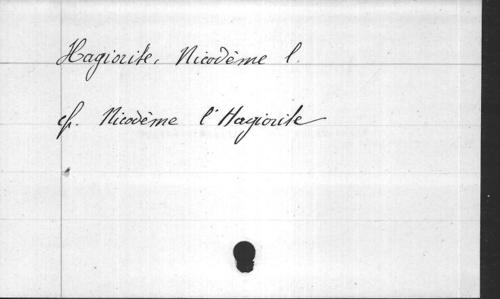 Hagiorite, Nicodème l.
cf. Nicodème l'Hagiorite